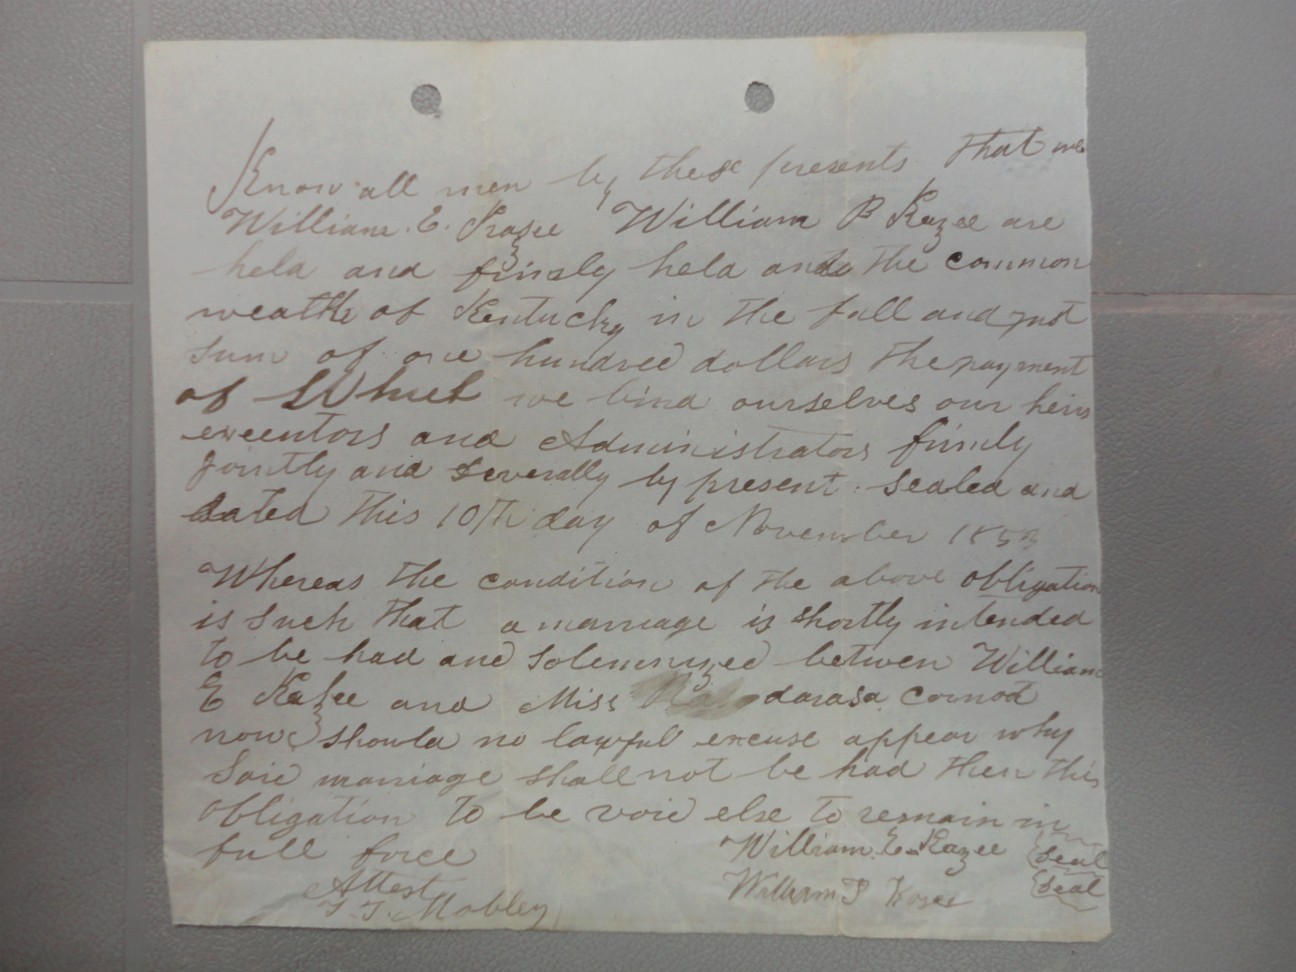 Know all men by these presents that we
William. E. Kazee William B Kazee are
held and firmly held and to the common
wealth of Kentucky in the full and just
sum of one hundred dollars the payment
of Which we bind ourselves our heirs
executors and Administrators firmly
jointly and severally by present. sealed and
dated this 10th day of November 1853
Whereas the condition of the above obligation
is such that a marriage is shortly intended
to be had and solemnized between William
E Kazee and Miss darasa cornod
now should no lawful excuse appear why
Said marriage shall not be had then this
obligation to be void else to remain in
full force
William. E. Kazee Seal
William Kazee Seal
Attest
T. T. Mobley